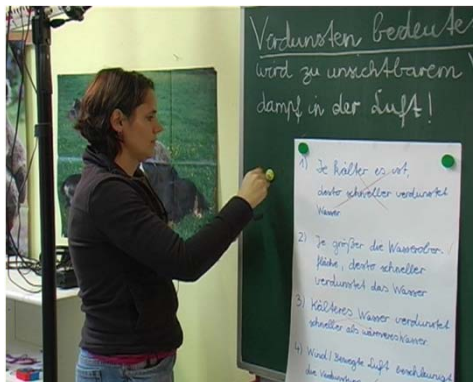 Verdunsten bedeute
wird zu unsichtbarem
dampf in der Luft!
1) Je kälter es ist,
desto schneller verdunstet
Wasser
2) Je größer die Wasserober-
fläche, desto schneller
verdunstet das Wasser
3) Kälteres Wasser verdunstet
schneller als wärmeres Wasser.
4) Wind/Bewegte Luft beschleunigt
die